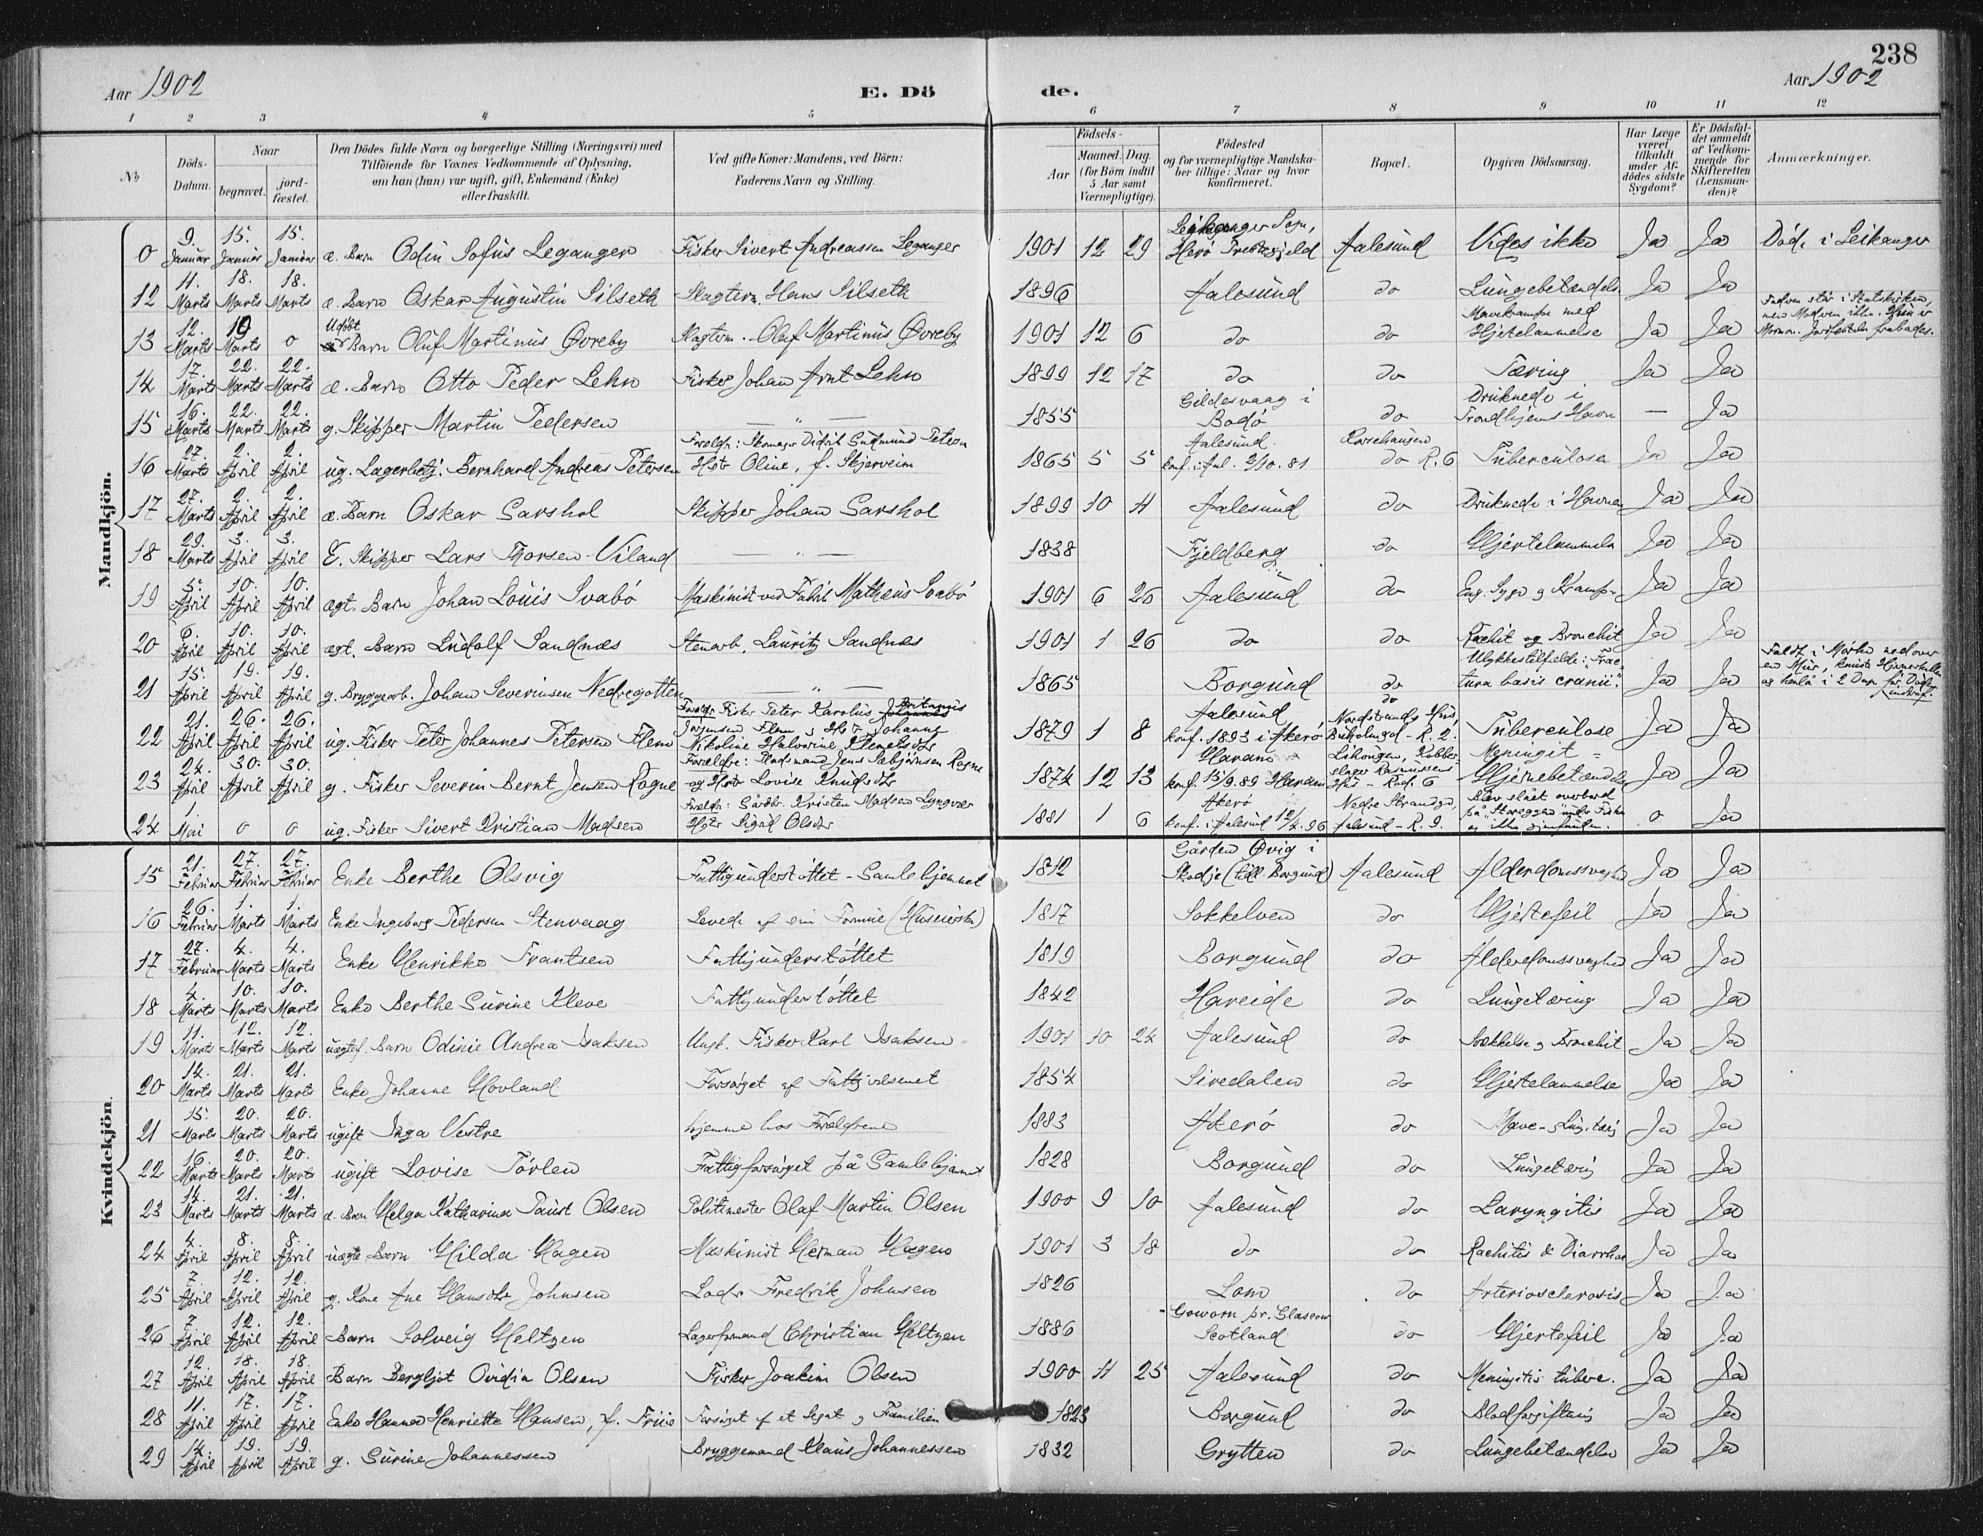 238
Aar 1902
E. Dö de.
Aar 1902
1 2 3 4 5 6 7 8 9 10 11 12
No
Döds-Datum.
Naar
begravet.
jord-fæstet.
Den Dödes fulde Navn og borgerlige Stilling (Næringsvei) med Tilföiende for Voxnes Vedkommende af Oplysning, om han (hun) var ugift, gift, Enkemand (Enke) eller fraskilt.
Ved gifte Koner: Mandens, ved Börn: Faderens Navn og Stilling.
Födsels-
Aar
Maaned. Dag.
(for Börn indtil 5 Aar samt Værnepligtige).
Födested og for værnepligtige Mandskaber tillige: Naar og hvor konfirmeret.
Bopæl.
Opgiven Dödsaarsag.
Har Læge været tilkaldt under Afdödes sidste Sygdom?
Er Dödsfaldet anmeldt af Vedkommende for Skifteretten (Lensmanden)?
Anmærkninger.
Mandkjön.
0 9. Januar 15. Januar 15. Januar æ. Barn Odin Sofus Leganger Fisker Sivert Andreassen Leganger 1901 12 29 Leikanger Sogn, Herø Præstegjeld Aalesund Vides ikke Ja Ja Død i Leikanger
12 11. Marts 18. Marts 18. Marts æ. Barn Oskar Augustin Silseth Slagterm. Hans Silseth 1896 Aalesund do Lungebetændelse Ja Ja
13 12. Marts 19 Marts 0 Udøbt Barn Oluf Martinus Øvreby Slagterm. Olaf Martinus Øvreby 1901 12 6 do do Mavekrampe med Hjertelammelse Ja Ja Faderen står i Statskirken, men Modren ikke. Hun er Mormon. Jordfæstelse frabades.
14 17. Marts 22. Marts 22. Marts æ. Barn Otto Peder Lehn Fisker Johan Arnt Lehn 1899 12 17 do do Tæring Ja Ja
15 16. Marts 22. Marts 22. Marts g. Skipper Martin Pedersen — " — 1855 Gildesvaag i Bodø do Druknede i Trondhjems Havn — Ja
16 27. Marts 2. April 2. April ug. Lagerbetj. Bernhard Andreas Petersen Foreldr: Skomager Didrik Gudmund Petersen Hstr Oline, f. Skjerveim 1865 5 5 Aalesund. konf. i Aal. 2/10.81 do R. 6 Tuberculose Ja Ja
17 27. Marts 2. April 2. April æ. Barn Oskar Sarshol Skipper Johan Sarshol 1899 10 11 Aalesund do Druknede i Havnen Ja Ja
18 29. Marts 3. April 3. April E. Skipper Lars Thorsen Viland — " — 1838 Fjeldberg do Hjertelammelse Ja Ja
19 5. April 10. April 10. April ægt. Barn Johan Louis Svabø Maskinist ved Fabrik Matheus Svabø 1901 6 26 Aalesund do Eng. Syge og Krampe Ja Ja
20 6. April 10. April 10. April ægt. Barn Ludolf Sandnæs Stenarb. Lauritz Sandnæs 1901 1 26 do do Rachit og Bronchit Ja Ja
21 15. April 19. April 19. April g. Bryggearb. Johan Severinsen Nedregotten — " — 1865 Borgund do Ulykkestilfælde: "Fractura basis cranii". Ja Ja Faldt i Mørke nedover en Mur, knuste Hjerneskallen og henlå i 2 Døgn før Døden indtraf.
22 21. April 26. April 26. April ug. Fisker Peter Johannes Petersen Flem Foreldr: Fisker Peter Karolus Antonius Jørgensen Flem og Hstr Johanna Nikoline Halvorine Klemetsdtr 1879 1 8 Aalesund konf. 1893 i Akerø do Nordstrands Hus, Buholmgd - R. 2. Tuberculose Ja Ja
23 24. April 30. April 30. April g. Fisker Severin Bernt Jensen Rogne Foreldre: Gaardmand Jens Sæbjørnsen Rogne og Hstr Lovise Knudsdtr 1874 12 13 Haram konf. 15/9.89 Haram Hus - Rod. 6 Meningit = Hjernebetændelse Ja Ja
24 1. Mai 0 0 ug. Fisker Sivert Kristian Madsen Foreldr: Gårdbr. Kristen Madsen Lyngvær Hstr Sigrid Olsdtr 1881 1 6 Akerø konf. i Aalesund 12/4.96 Nedre Strandgd, Aalesund - R. 9. Blev slået overbord på "Storeggen" under Fiske og ikke gjenfunden. 0 Ja
Kvindekjön.
15 21. Februar 27. Februar 27. Februar Enke Berthe Olsvig Fattigunderstøttet - Samlehjemmet 1812 Gården Øvig i Skodje (tidl. Borgund) Aalesund Alderdomssvaghed Ja Ja
16 26. Februar 1. Marts 1. Marts Enke Ingeborg Pedersen Stenvaag Levede af sin Formue (Huseierske) 1817 Søkkelven do Hjertefeil Ja Ja
17 27. Februar 4. Marts 4. Marts Enke Henrikke Frantsen Fattigunderstøttet 1819 Borgund do Alderdomssvaghed Ja Ja
18 4. Marts 10. Marts 10. Marts Enke Berthe Surine Kleve Fattigunderstøttet 1842 Hareide do Lungetæring Ja Ja
19 11. Marts 12. Marts 12. Marts uægtef. Barn Odinie Andrea Isaksen Ungk. Fisker Karl Isaksen 1901 10 24 Aalesund do Svækkelse og Bronchit Ja Ja
20 14. Marts 21. Marts 21. Marts Enke Johanne Hovland Forsørget af Fattigvæsenet 1854 Siredalen do Hjertelammelse Ja Ja
21 15. Marts 20. Marts 20. Marts ugift Inga Vestre hjemme hos Forældrene 1883 Akerø do Mave- og Lungetærg Ja Ja
22 16 Marts 20. Marts 20. Marts ugift Lovise Tørlen Fattigforsørget på Samlehjemmet 1828 Borgund do Lungetærig Ja Ja
23 14. Marts 21. Marts 21. Marts æ. Barn Helga Katharina Faust Olsen Politimester Olaf Martin Olsen 1900 9 10 Aalesund do Laryngitis Ja Ja
24 4. April 8. April 8. April uægte Barn Hilda Hagen Maskinist Herman Hagen 1901 3 18 do do Rachitis & Diarrhoe Ja Ja
25 7. April 12. April 12. April g. Kone Ane Hansdtr Johnsen Lods Fredrik Johnsen 1826 Lom do Arteriosclerosis Ja Ja
26 7 April 12. April 12. April Barn Solveig Heltzen Lagerformand Christian Heltzen 1886 Goworn pr. Glascow Scotland do Hjertefeil Ja Ja
27 12. April 18. April 18. April Barn Bergljot Ovidia Olsen Fisker Joakim Olsen 1900 11 25 Aalesund do Meningitis tuberc. Ja Ja
28 11. April 17. April 17. April Enke Hanna Henriette Hansen, f. Friis Forsørget af et Legat og Familien 1823 Borgund do Blodforgiftning Ja Ja
29 14. April 19. April 19. April g. Surine Johannessen Bryggemand Klaus Johannessen 1832 Grytten do Lungebetændelse Ja Ja